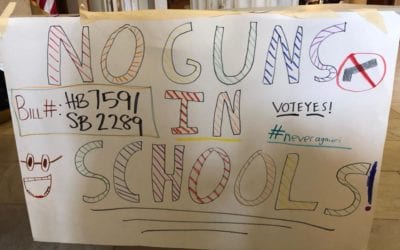 NO GUNS
Bill#: HB7591
SB 2289
IN
VOTE YES!
#neveragain
SCHOOLS!